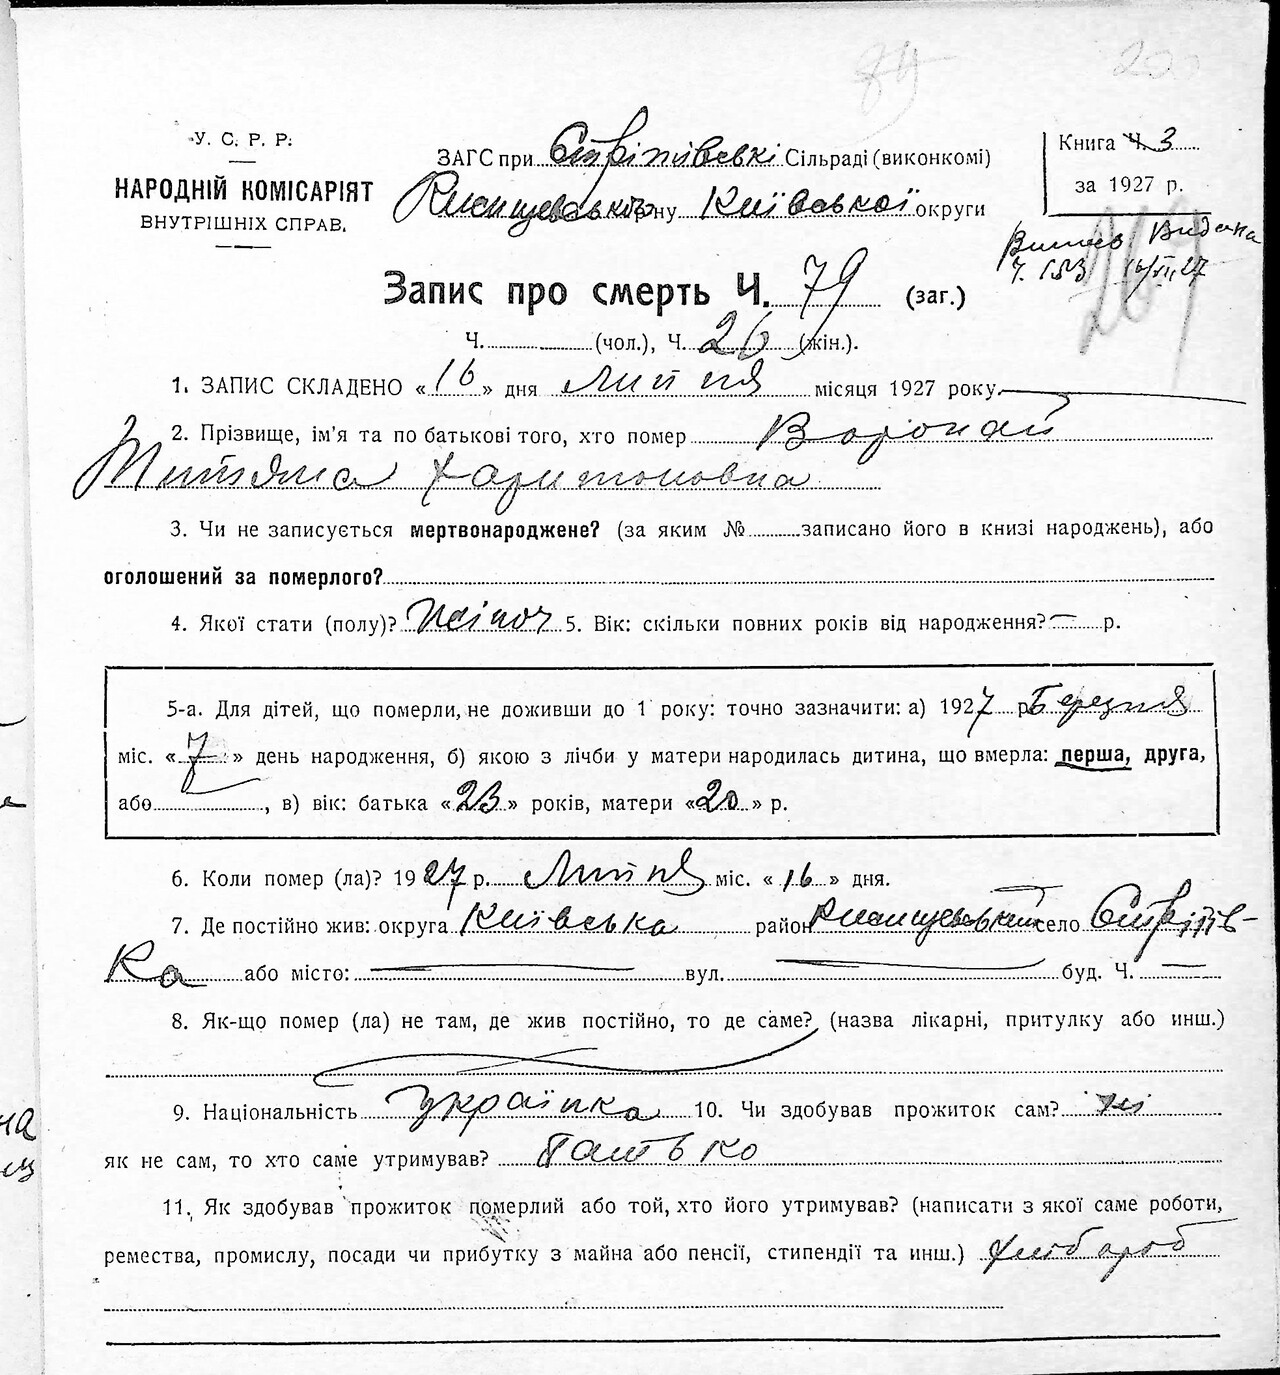 89
200
У. С. Р. Р.
НАРОДНІЙ КОМІСАРІЯТ
ВНУТРІШНІХ СПРАВ.
ЗАГС при Стріпівські Сільраді (виконкомі)
району Київської округи
Книга Ч. 3
за 1927 р.
Видана
Ч. 153 16/VII 27
Запис про смерть Ч. 79 (заг.)
Ч. (чол.), Ч. 26 (жін.).
1. ЗАПИС СКЛАДЕНО «16» дня Липня місяця 1927 року.
2. Прізвище, ім'я та по батькові того, хто помер Воропай
Титяна Харитоновна
3. Чи не записується мертвонароджене? (за яким № записано його в книзі народжень), або
оголошений за померлого?
4. Якої стати (полу)? Жіноч 5. Вік: скільки повних років від народження? — р.
5-а. Для дітей, що померли, не доживши до 1 року: точно зазначити: а) 1927 р. Березня
міс. «7» день народження, б) якою з лічби у матери народилась дитина, що вмерла: перша, друга,
або , в) вік: батька «23» років, матери «20» р.
6. Коли помер (ла)? 1927 р. Липня міс. «16» дня.
7. Де постійно жив: округа Київська район село Стріпів-
ка або місто: — вул. — буд. Ч. —
8. Як-що помер (ла) не там, де жив постійно, то де саме? (назва лікарні, притулку або инш.)
9. Національність Українка 10. Чи здобував прожиток сам? ні
як не сам, то хто саме утримував? батько
11. Як здобував прожиток померлий або той, хто його утримував? (написати з якої саме роботи,
ремества, промислу, посади чи прибутку з майна або пенсії, стипендії та инш.) хлібороб